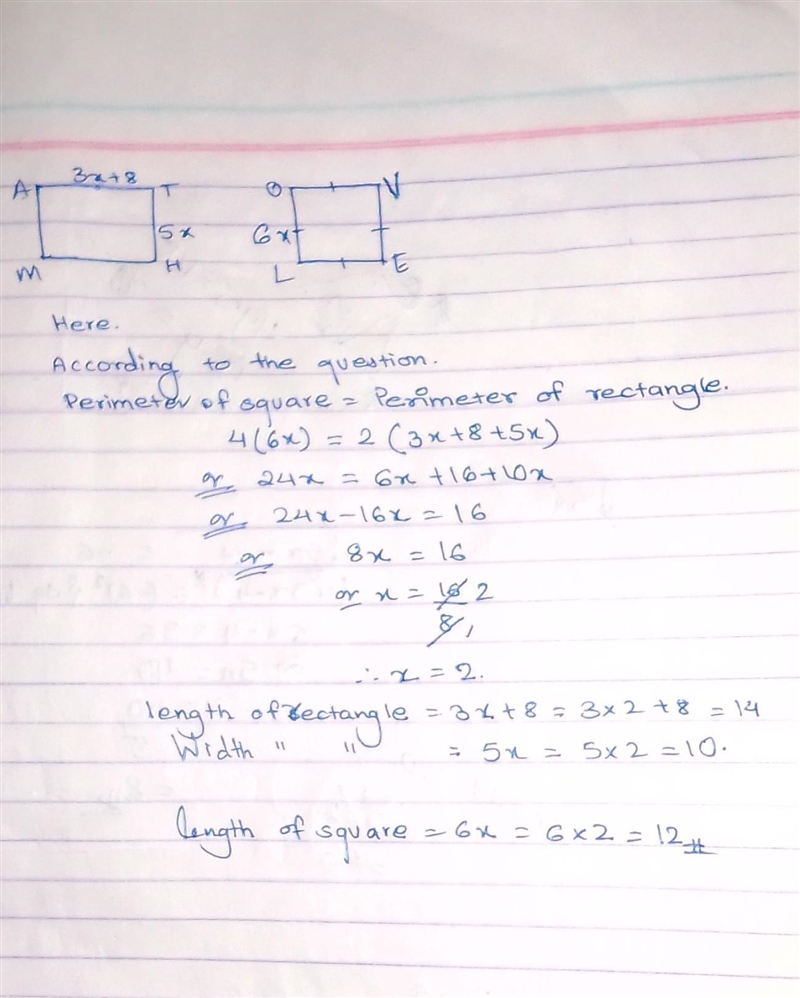 A 3x+8 T O V
5x 6x
M H L E
Here.
According to the question.
Perimeter of square = Perimeter of rectangle.
4(6x) = 2(3x+8+5x)
or 24x = 6x+16+10x
or 24x-16x = 16
or 8x = 16
or x = 16 2
8 1
∴ x = 2.
length of rectangle = 3x+8 = 3×2+8 = 14
Width " " = 5x = 5×2 = 10.
length of square = 6x = 6×2 = 12 #